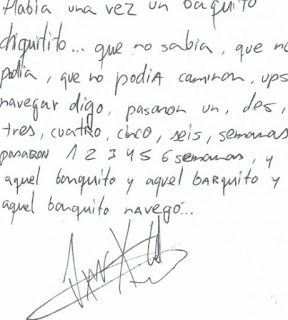 Había una vez un barquito
chiquitito... que no sabia, que no
podia, que no podiA caminar, ups
navegar digo, pasaron un, dos,
tres, cuatro, cinco, seis, semanas
pasaron 1 2 3 4 5 6 semanas, y
aquel barquito y aquel BARquito y
aquel barquito navegó...